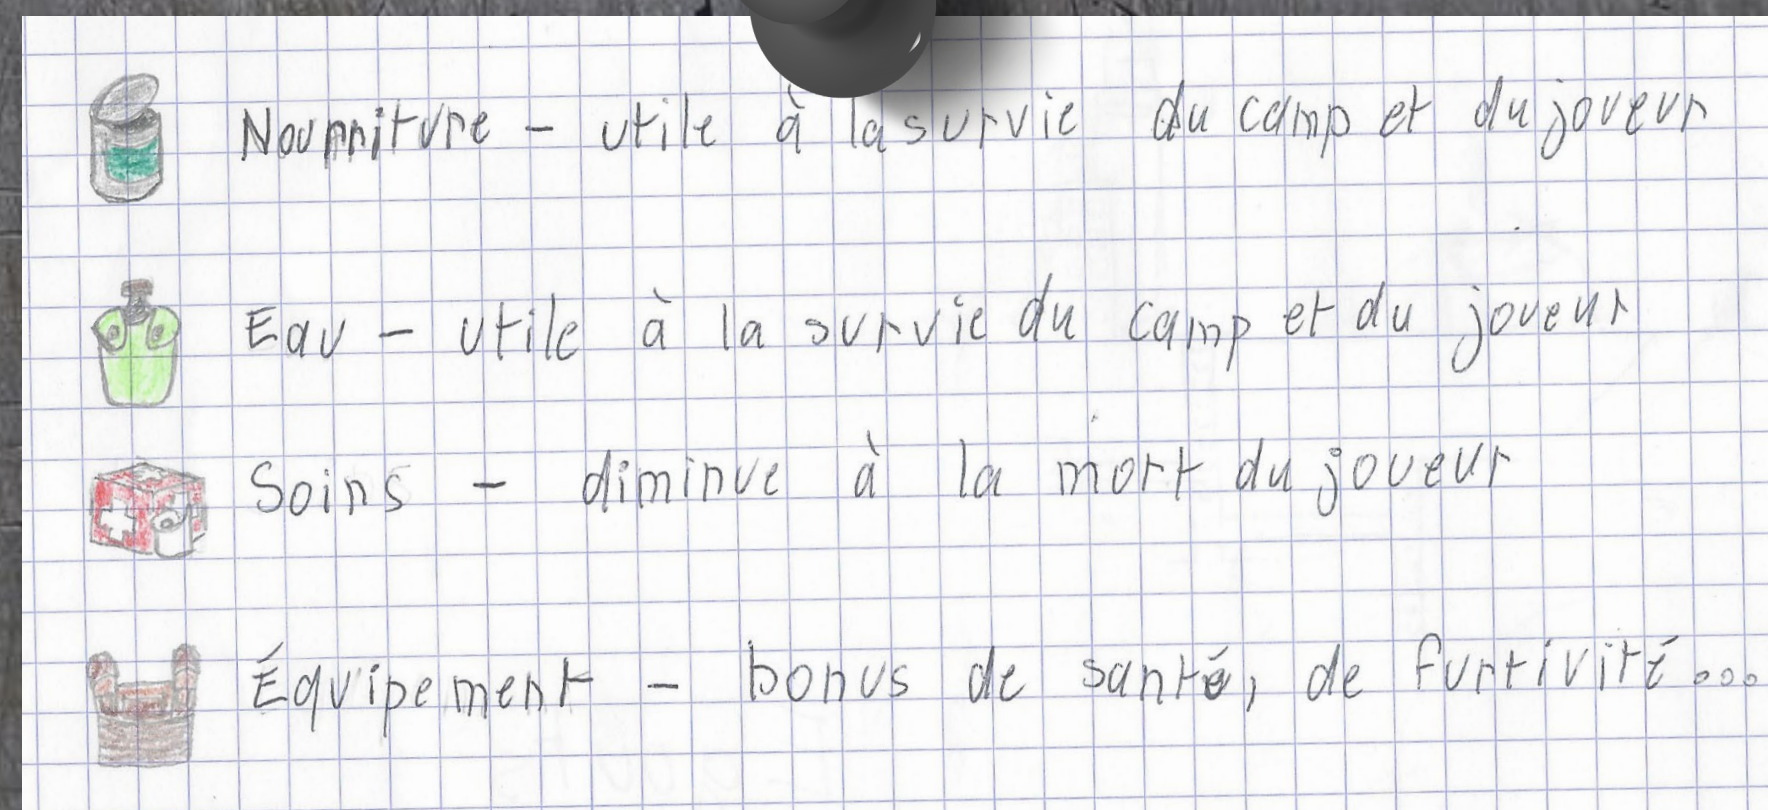 Nourriture - utile à la survie du camp et du joueur
Eau - utile à la survie du camp et du joueur
Soins - diminue à la mort du joueur
Équipement - bonus de santé, de furtivité...